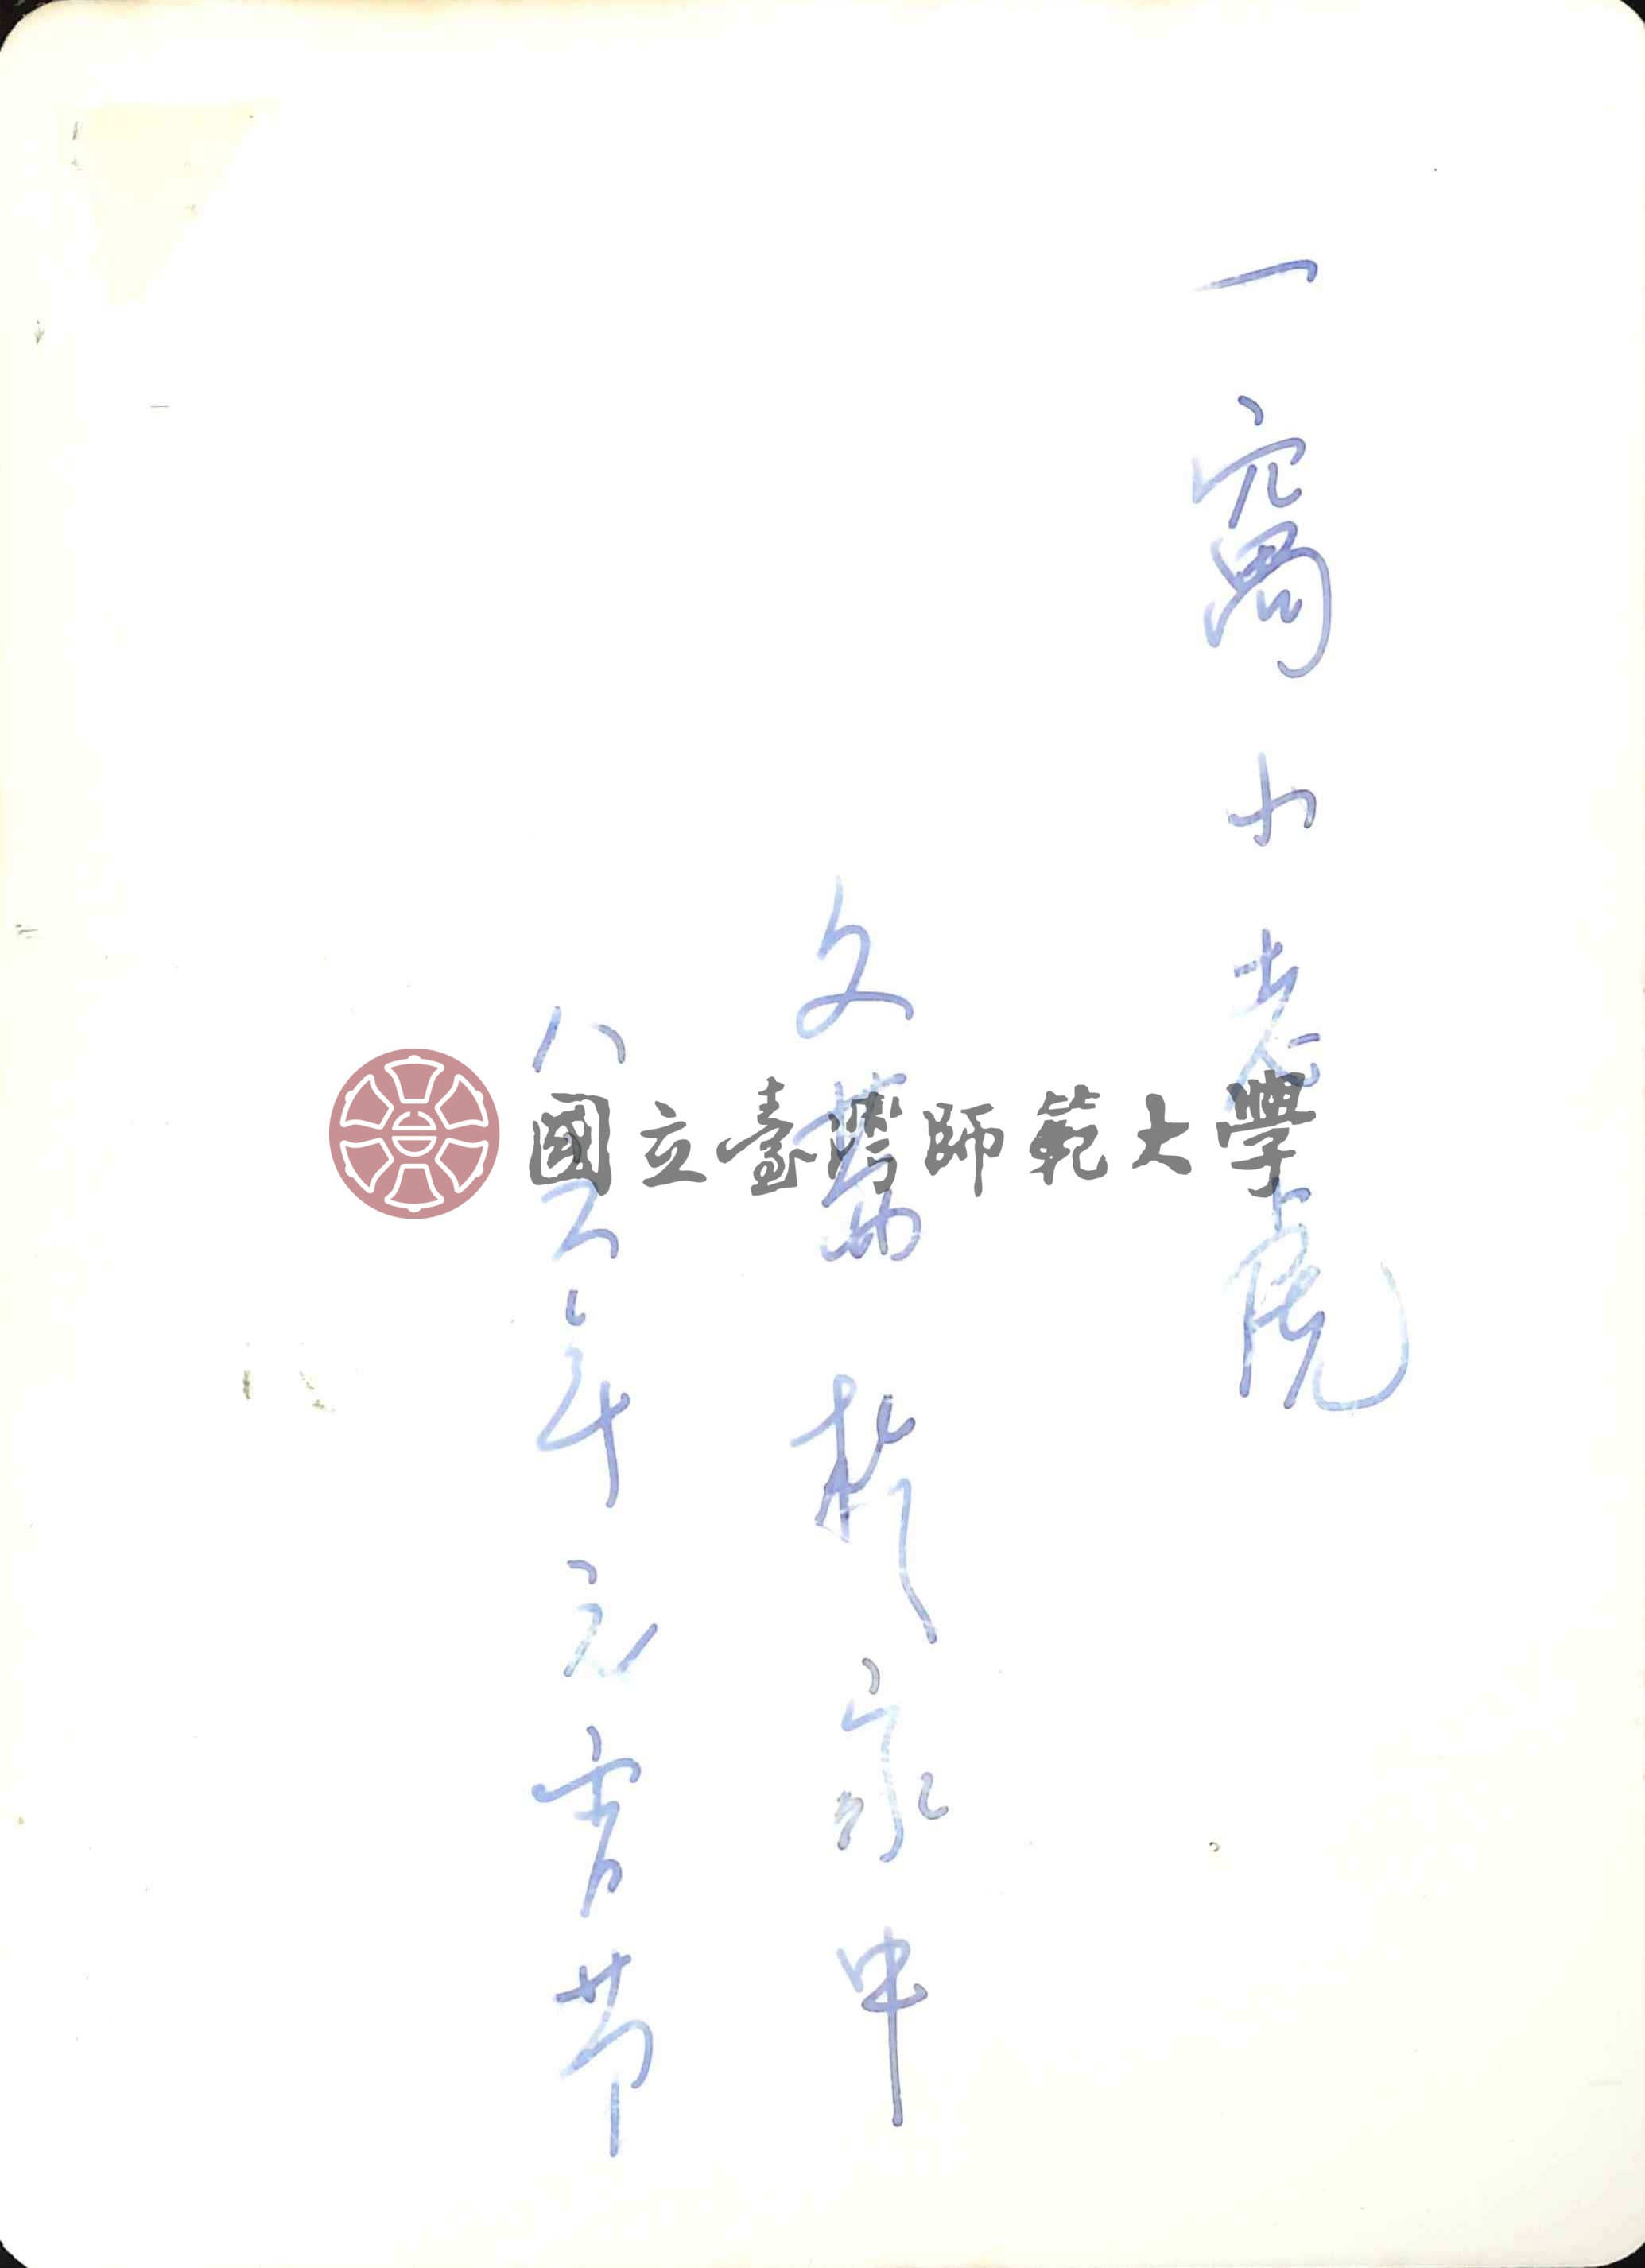 一窩小老虎
文 於家中
八 年元宵节
國立臺灣師範大學